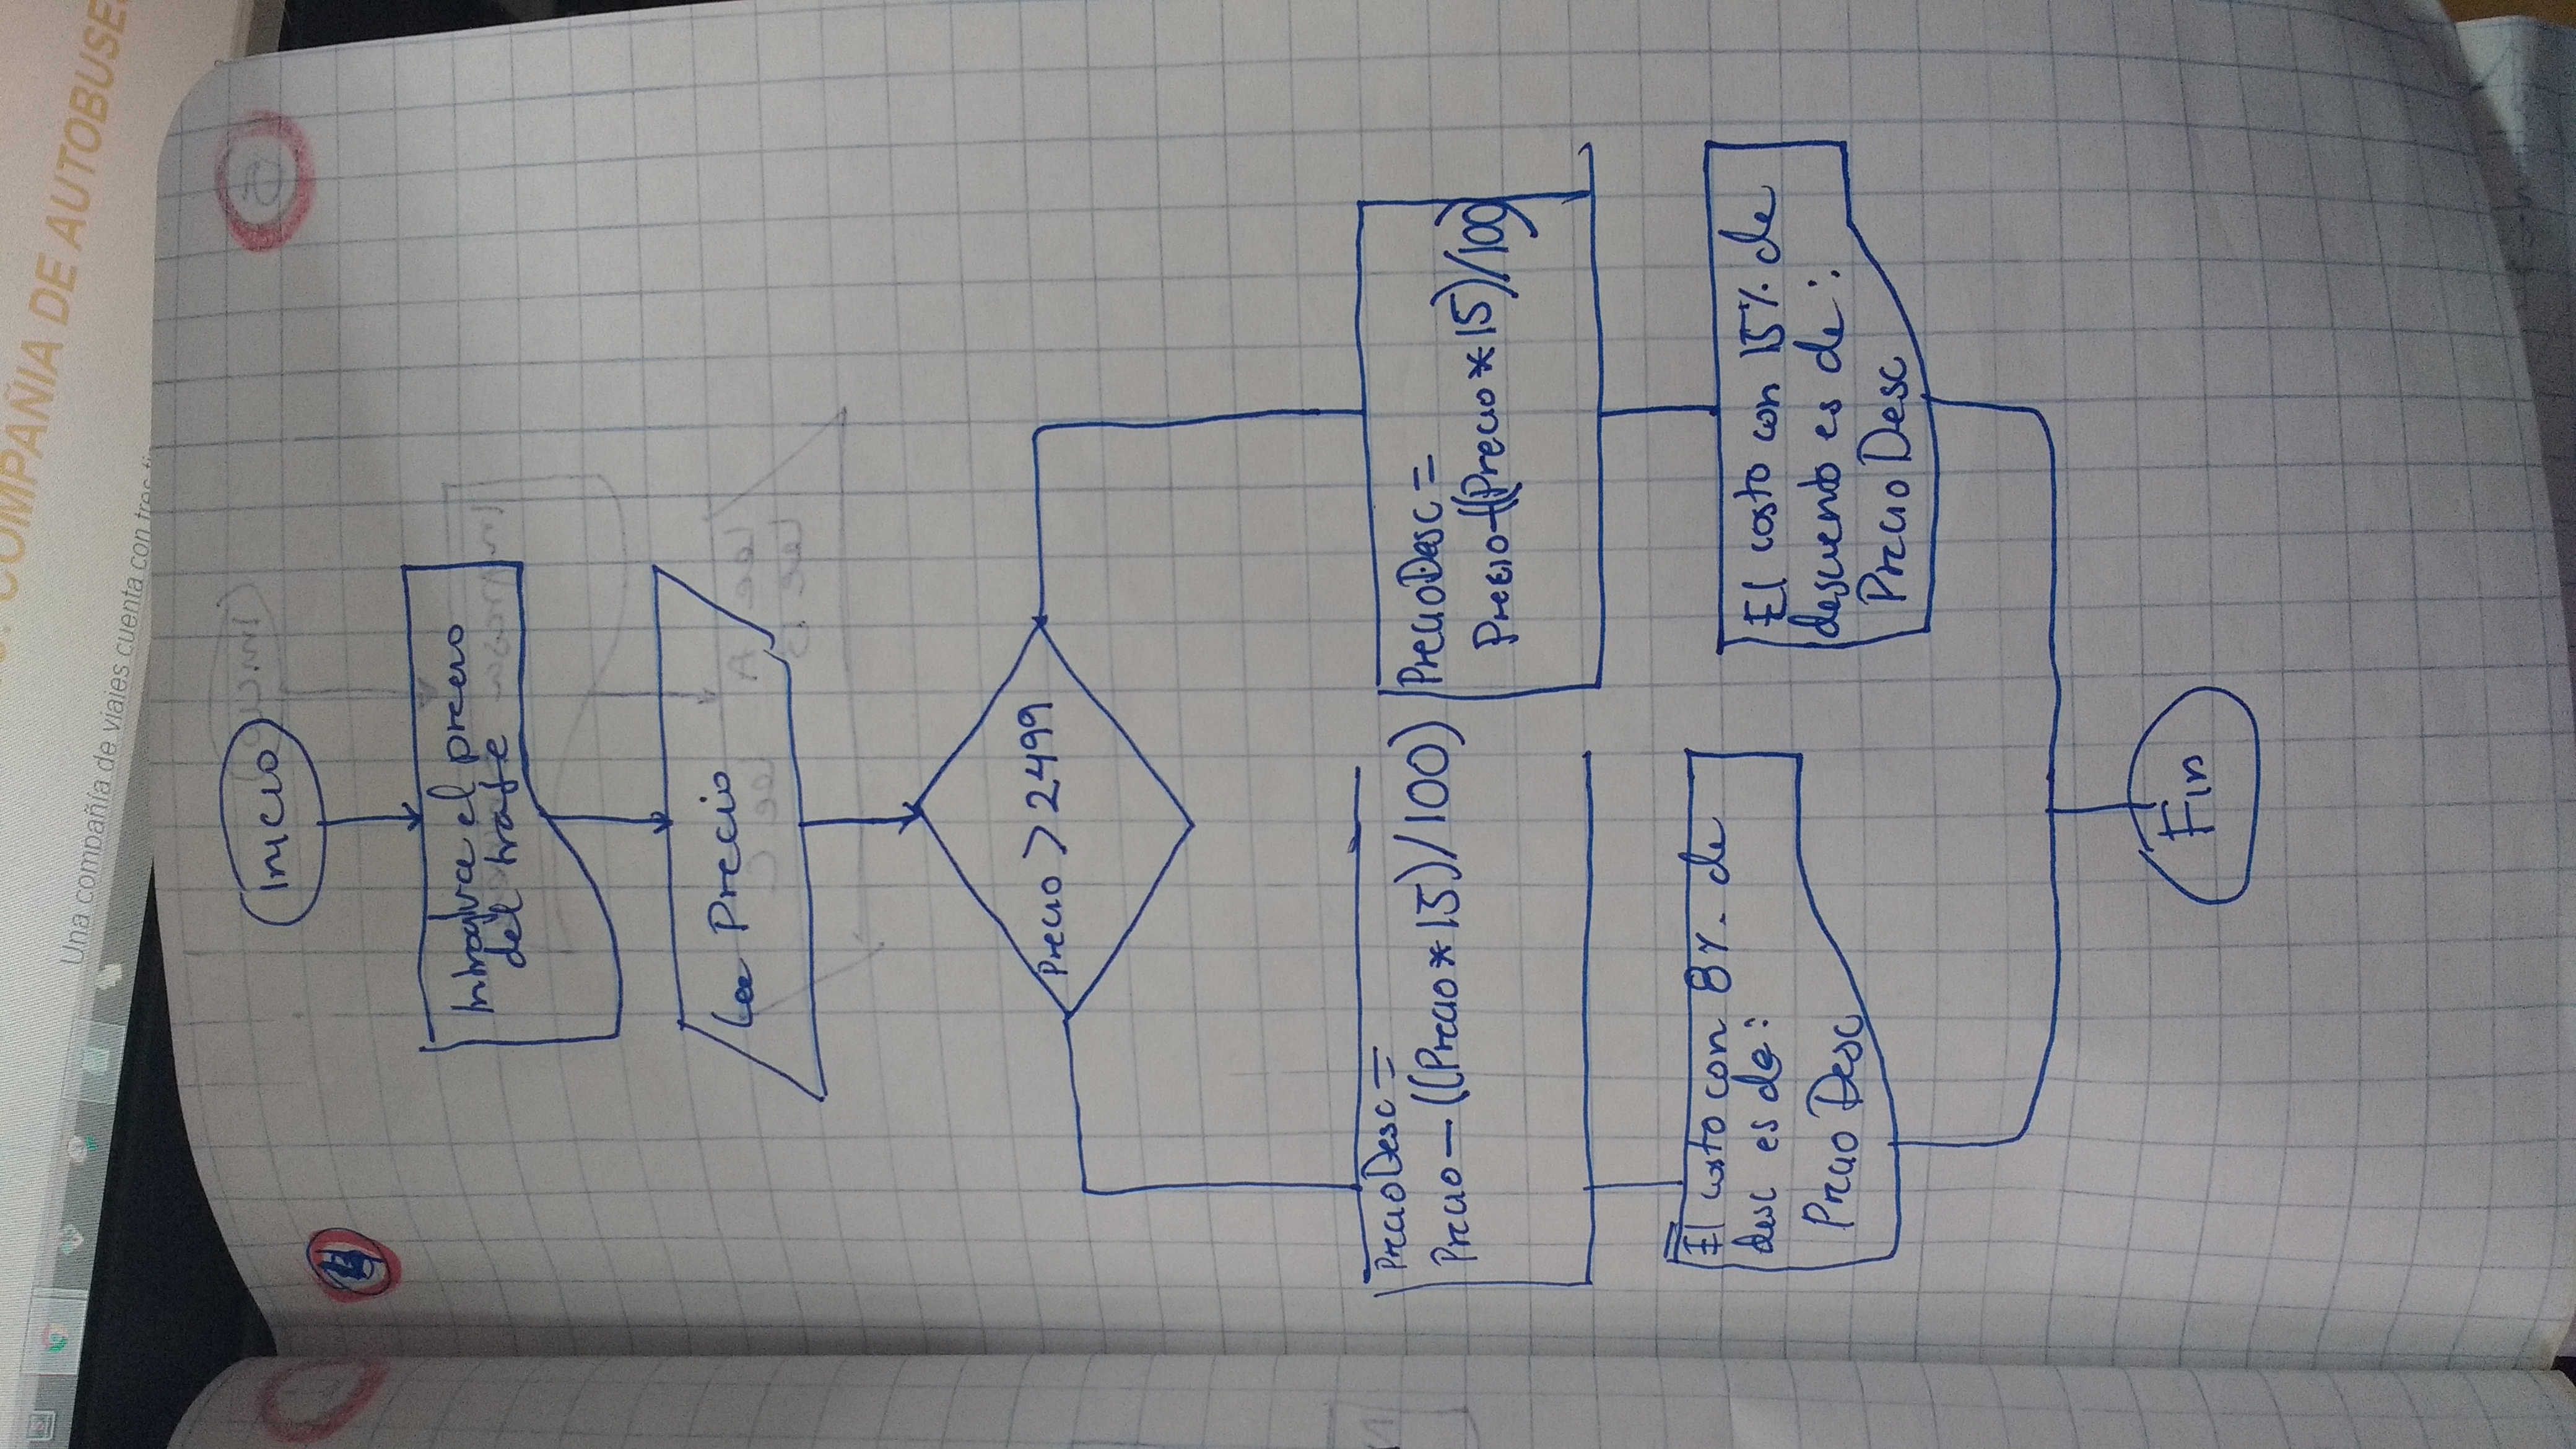 COMPAÑIA DE AUTOBUSE
Una compañía de viajes cuenta con tres
4
Inicio
Introduce el precio
del traje
Lee Precio
Precio > 2499
PrecioDesc =
Precio - ((Precio * 15)/100)
PrecioDesc =
Precio - ((Precio * 15)/100)
El costo con 8% de
desc es de:
Precio Desc
El costo con 15% de
descuento es de:
Precio Desc
Fin